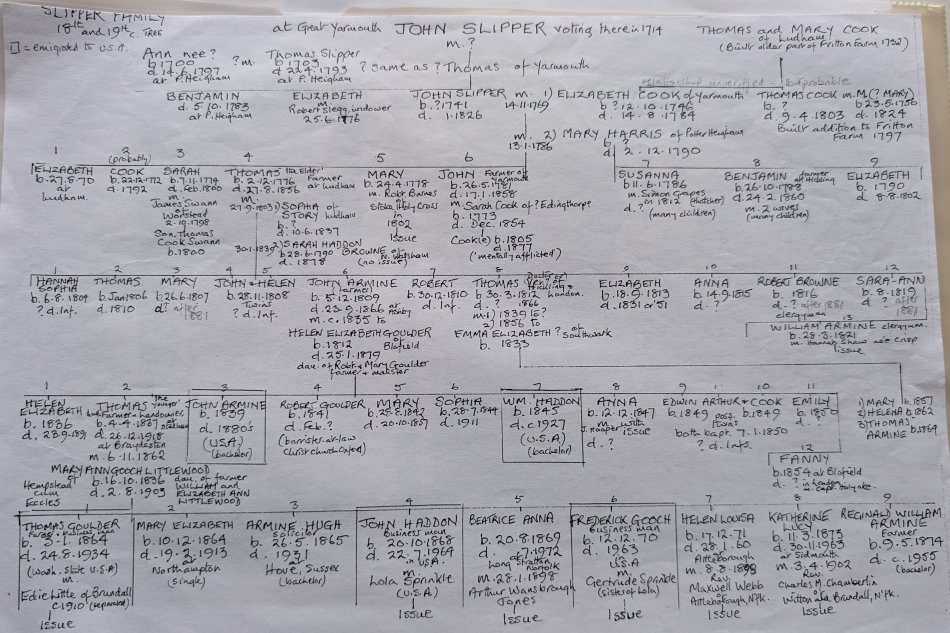 SLIPPER FAMILY
18th and 19th c. TREE
[] = emigrated to U.S.A.
at Great Yarmouth JOHN SLIPPER voting there in 1714
m. ?
THOMAS and MARY COOK
of Ludham
(Built older part of Fritton Farm 1732)
Ann nee?
b. 1700
d. 14.6.1797
at P. Heigham
? m.
Thomas Slipper
b. 1703
d. 22.4.1793
at P. Heigham
? same as ? Thomas of Yarmouth
relationship unverified - but probable
BENJAMIN
d. 5.10.1783
at P. Heigham
ELIZABETH
m.
Robert Slegg, widower
25.6.1776
JOHN SLIPPER
b. ?1741
d. 1.1826
m. 1)
14.11.1769
ELIZABETH COOK of Yarmouth
b. ? 12.10.1746
d. 14.8.1784
THOMAS COOK
b. ?
d. 9.4.1803
m. M(? MARY)
b 23.5.1750
d. 1824
Built addition to Fritton
Farm 1797
m. 2)
13.1.1786
MARY HARRIS of Potter Heigham
b. ?
d. 2.12.1790
1
ELIZABETH
b. 27.8.70
at
Ludham.
2
(probably)
COOK
b. 22.12.1772
d. 1792
3
SARAH
b. 7.11.1774
d. Feb. 1800
m.
James Swann
of
Worstead
2.10.1798
Son, Thomas
Cook Swann
b. 1800
4
THOMAS 'the Elder'
b. 2.12.1776
d. 27.8.1856
Farmer
at Ludham
m.
27.9.1803 1) SOPHIA of
STORY Ludham
b.
d. 10.6.1837
30.1.1839 2) SARAH HADDON
b. 28.6.1790 BROWNE of N. Walsham
d. 1878 (no issue)
5
MARY
b. 24.4.1778
m. Robt. Barnes
of
Stoke Holy Cross
in
1802
Issue
6
JOHN Farmer of Yarmouth
b. 26.5.1781
d. 17.1.1858
m. Sarah Cook of ? Edingthorpe
b. 1773
d. Dec. 1854
Cook(e) b. 1805
d. 1877
('mentally afflicted')
7
SUSANNA
b. 11.6.1786
m. Simon Grapes
in 1812 (thatcher)
d. ?
(many children)
8
BENJAMIN farmer at Hickling
b. 26.10.1788
d. 24.2.1860
m. 2 wives
(many children)
9
ELIZABETH
b. 1790
d. 8.8.1802
1
HANNAH
SOPHIA
b. 6.8.1804
? d. Inf.
2
THOMAS
b. Jan 1806
d. 1810
3
MARY
b. 26.6.1807
d. ? after
1881
4 5
JOHN + HELEN
b. 28.11.1808
Twins
? d. Inf.
6
JOHN ARMINE
(farmer)
b. 5.12.1809
d. 23.9.1866 at Ashby
m. c. 1835 to
HELEN ELIZABETH GOULDER
b. 1812 of Blofield
d. 25.1.1879
dau. of Robt. & Mary Goulder
farmer + maltster
7
ROBERT
b. 30.12.1810
d. Inf.
8
THOMAS
b. 30.3.1812
d. ? 1866
m. 1) 1839 to ?
2) 1856 to
EMMA ELIZABETH ? of Southwark
b. 1833
9
ELIZABETH
b. 18.9.1813
d. 1831 or '51
10
ANNA
b. 14.9.1815
d. ?
11
ROBERT BROWNE
b. 1816
d. ? after 1881
clergyman
12
SARA-ANN
b. 8.1819
d. ? after
1881
13
WILLIAM ARMINE clergyman.
b. 28.3.1821
m. Hannah Shaw nee Crisp
Issue
1
HELEN
ELIZABETH
b. 1836
d. 23.9.189
2
THOMAS 'the younger'
Farmer + landowner
b. 4.4.1837
d. 26.12.1918
at Braydeston
m. 6.11.1862
MARY ANN GOOCH LITTLEWOOD
of
Hempstead
cum
Eccles
b. 16.10.1836
d. 2.8.1903
dau. of farmer
WILLIAM and
ELIZABETH ANN
LITTLEWOOD
3
JOHN ARMINE
b. 1839
d. 1880s
(U.S.A.)
(bachelor)
4
ROBERT GOULDER
b. 1841
d. Feb. ?
(barrister-at-law
Christ Church Oxford)
5
MARY
b. 28.8.1842
d. 20.10.1857
6
SOPHIA
b. 28.7.1844
d. 1911
7
WM. HADDON
b. 1845
d. c 1927
(U.S.A.)
(bachelor)
8
ANNA
b. 12.12.1847
m. with
issue
d. ?
9 10
EDWIN ARTHUR + COOK
b. 1849 poss. b. 1849
twins
both bapt. 7.1.1850
? d. Infs.
11
EMILY
b. 1850
d. ?
12
FANNY
b. 1854 at Blofield
d. ? in London
m. Capt. Holyoke.
1) MARY b. 1857
2) HELENA b. 1862
3) THOMAS
ARMINE b. 1864
1
THOMAS GOULDER
b. 5.1.1864
d. 24.8.1934
(Wash. State U.S.A)
m.
Edie Little of Brundall
c. 1910 (separated)
Issue
2
MARY ELIZABETH
b. 10.12.1864
d. 19.2.1913
at
Northampton
(single)
3
ARMINE HUGH
solicitor
b. 26.5.1865
d. 1931
at
Hove, Sussex
(bachelor)
4
JOHN HADDON
business man
b. 20.10.1868
d. 22.7.1964
in U.S.A.
m.
Lola Sprinkle
(U.S.A.)
Issue
5
BEATRICE ANNA
b. 20.8.1869
d. 7.1972
Long Stratton
Norfolk
m. 28.1.1898
Arthur Wansbrough
Jones
Issue
6
FREDERICK GOOCH
business man
b. 12.12.70
d. 1963
in
U.S.A
m.
Gertrude Sprinkle
(sister of Lola)
Issue
7
HELEN LOUISA
b. 17.12.71
d. 28.1.60
Attleborough
m. 8.8.1899
Rev.
Maxwell Webb
of
Attleborough, N'flk.
Issue
8
KATHERINE
LUCY
b. 11.3.1873
d. 30.11.1963
in Sidmouth
m. 3.4.1902
Rev.
Charles M. Chamberlin
of
Witton and Brundall, N'flk.
Issue
9
REGINALD WILLIAM
ARMINE
Farmer
b. 9.5.1874
d. c 1955
(bachelor)